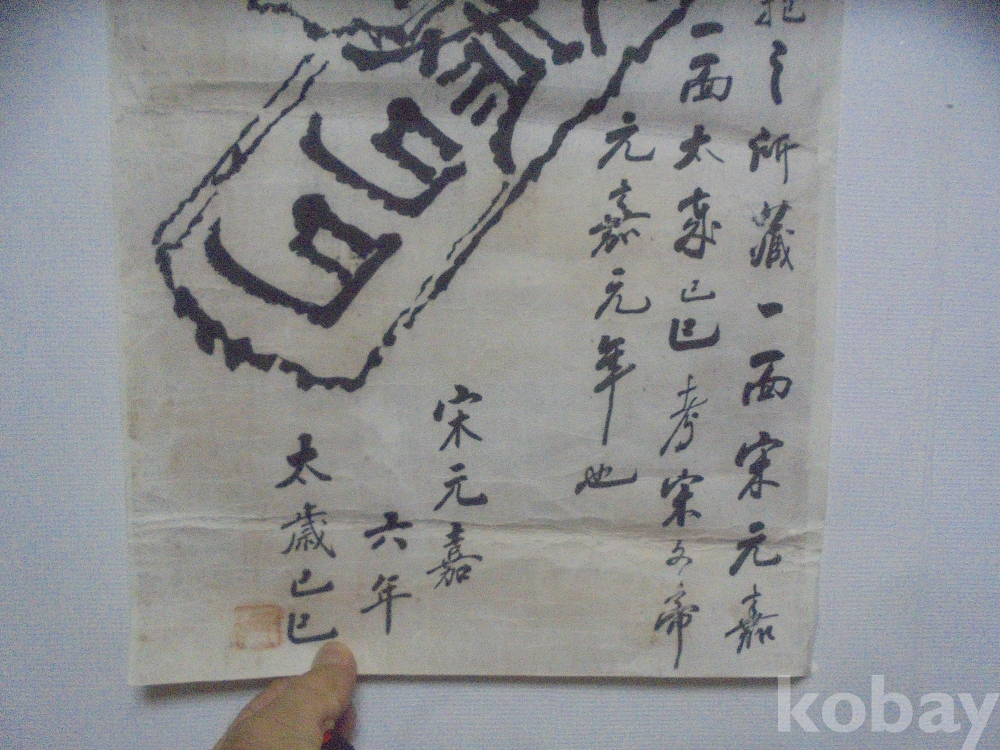 之所藏一面宋元嘉
一面太歲己巳考宋文帝
元嘉元年也
宋元嘉
六年
太歲己巳
kobay